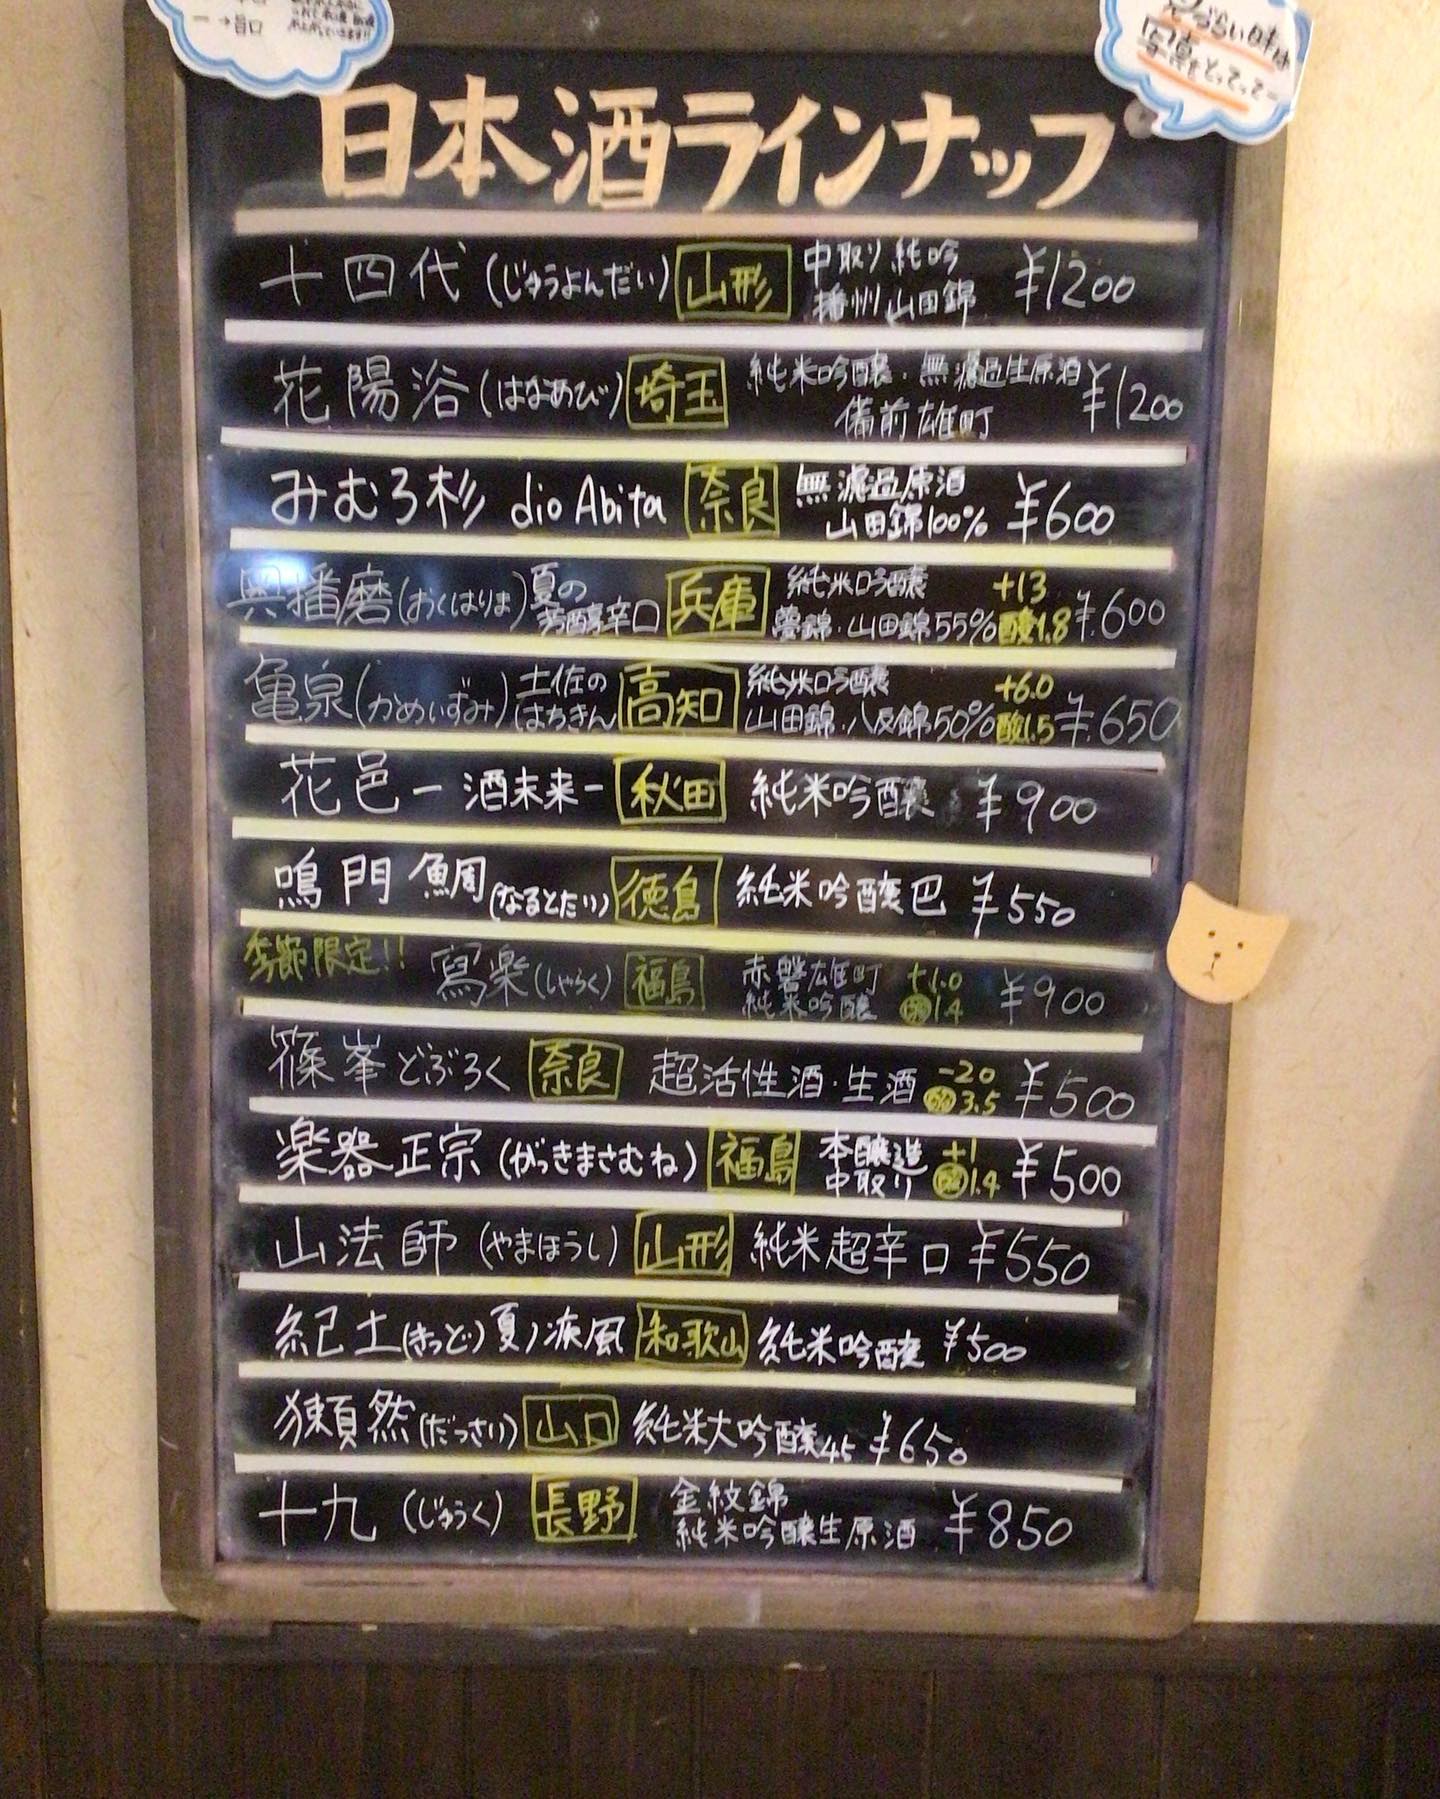 →旨口
見づらい時は
写真をとってってー
日本酒ラインナップ
十四代(じゅうよんだい) 山形 中取り純吟 播州山田錦 ¥1200
花陽浴(はなあび) 埼玉 純米吟醸・無濾過生原酒 備前雄町 ¥1200
みむろ杉 dio Abita 奈良 無濾過原酒 山田錦100% ¥600
奥播磨(おくはりま) 夏の芳醇辛口 兵庫 純米吟醸 夢錦・山田錦55% +13 酸1.8 ¥600
亀泉(かめいずみ) 土佐のはちきん 高知 純米吟醸 山田錦・八反錦50% +6.0 酸1.5 ¥650
花邑ー酒未来ー 秋田 純米吟醸 ¥900
鳴門鯛(なるとたい) 徳島 純米吟醸巴 ¥550
季節限定!! 寫楽(しゃらく) 福島 赤磐雄町 純米吟醸 +1.0 酸1.4 ¥900
篠峯どぶろく 奈良 超活性酒・生酒 -20 酸3.5 ¥500
楽器正宗(がっきまさむね) 福島 本醸造 中取り +1 酸1.4 ¥500
山法師(やまほうし) 山形 純米超辛口 ¥550
紀土(きっど)夏ノ疾風 和歌山 純米吟醸 ¥500
獺祭(だっさい) 山口 純米大吟醸45 ¥650
十九(じゅうく) 長野 金紋錦 純米吟醸生原酒 ¥850